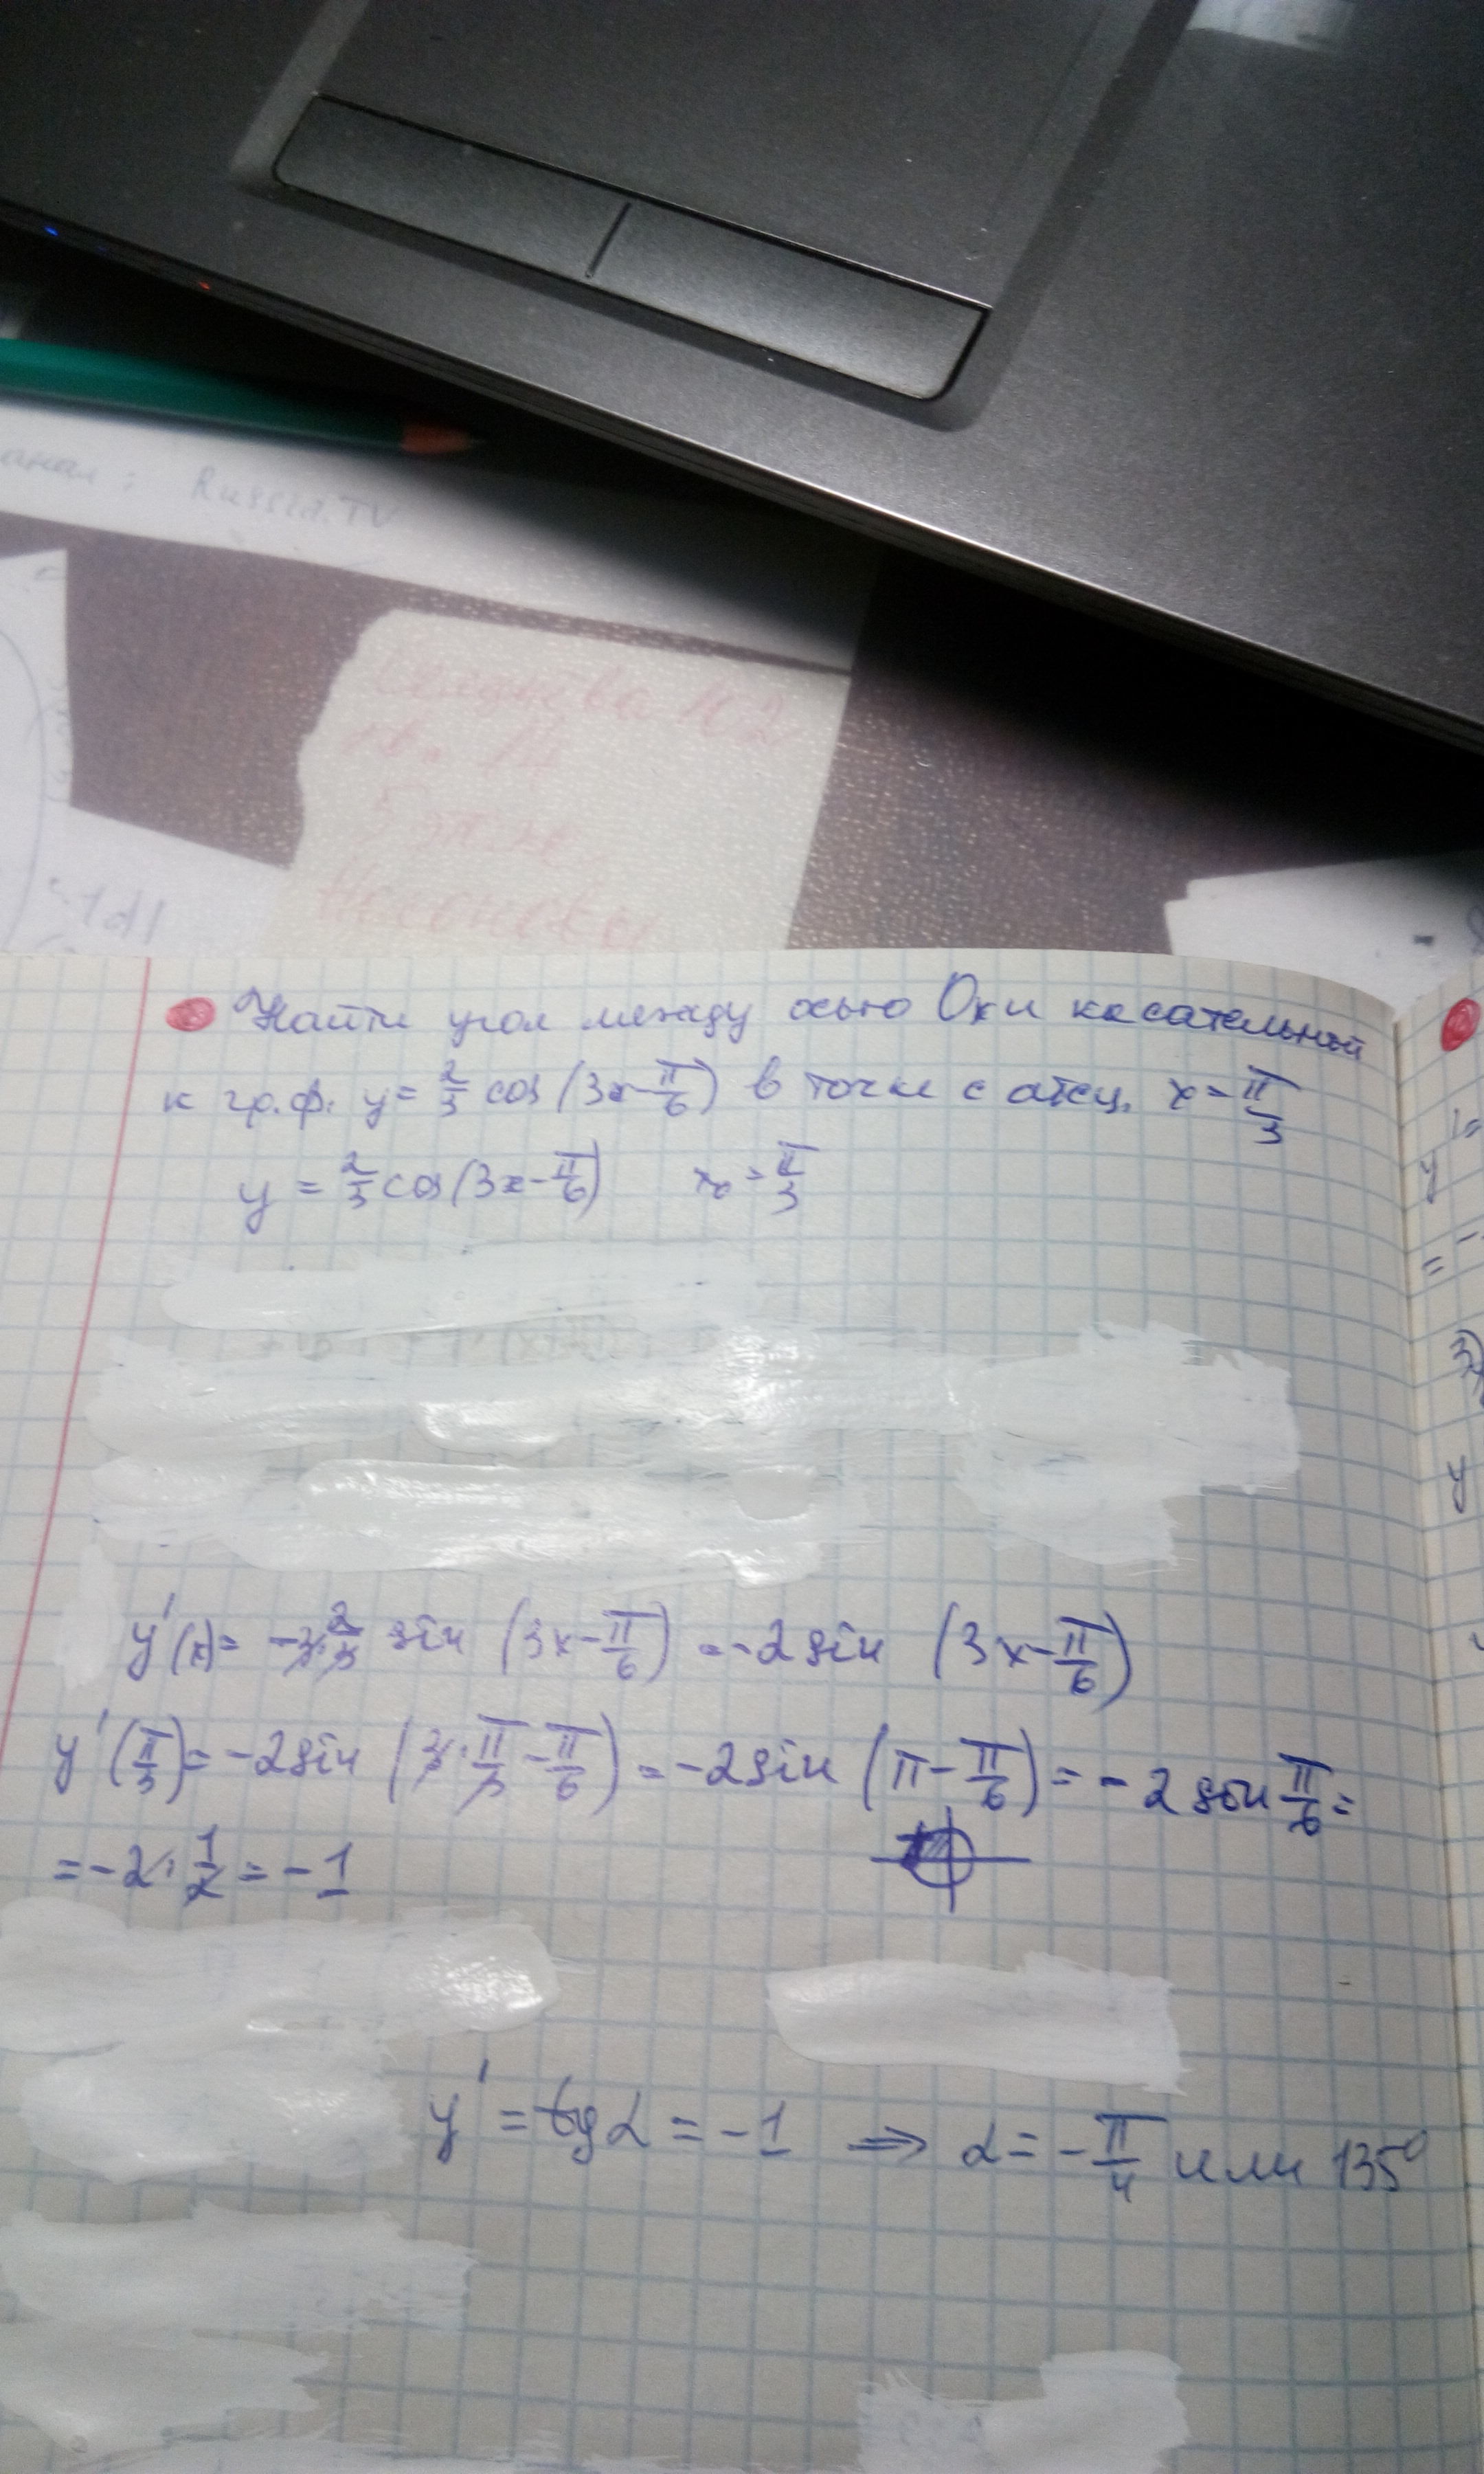 анал: Russia.TV
кв. 14
5 этаж
Найти угол между осью Ox и касательной
к гр.ф. y = 2/3 cos (3x - π/6) в точке с абсц. x = π/3
y = 2/3 cos (3x - π/6) x₀ = π/3
y'(x) = -3·2/3 sin (3x - π/6) = -2 sin (3x - π/6)
y'(π/3) = -2 sin (3·π/3 - π/6) = -2 sin (π - π/6) = -2 sin π/6 =
= -2·1/2 = -1
y' = tg α = -1 ⇒ α = -π/4 или 135°
1=
y
= -
3)
y